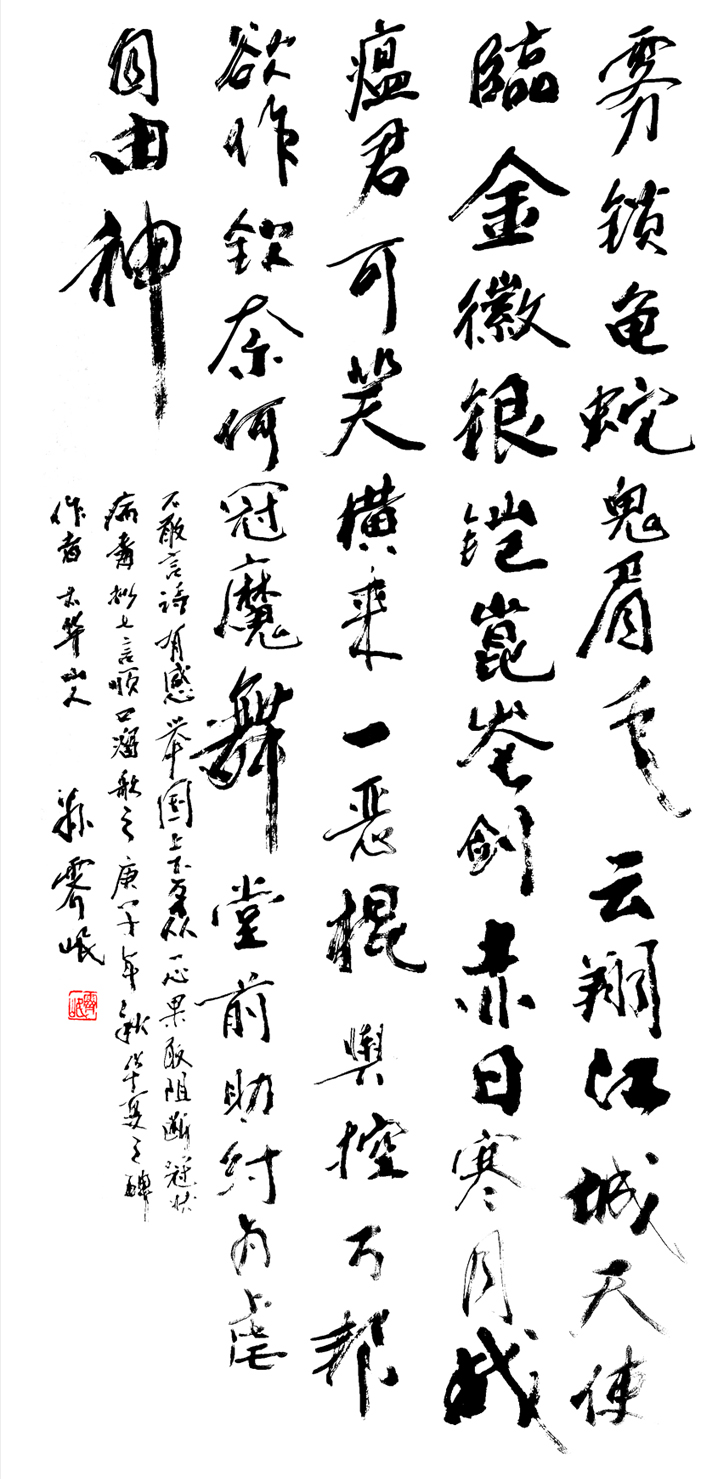 雾锁龟蛇鬼眉 云翔江城天使
临金徽银铠崑剑赤日寒月
瘟君可笑横来一恶棍 舆控万帮
欲作钦奈何冠魔舞堂前助纣为虐
自由神
不敢言诗有感举国上下万众一心果敢阻断冠状
病毒拟七言顺口溜歌之庚子年秋华夏之
作者太华山人 霁岷